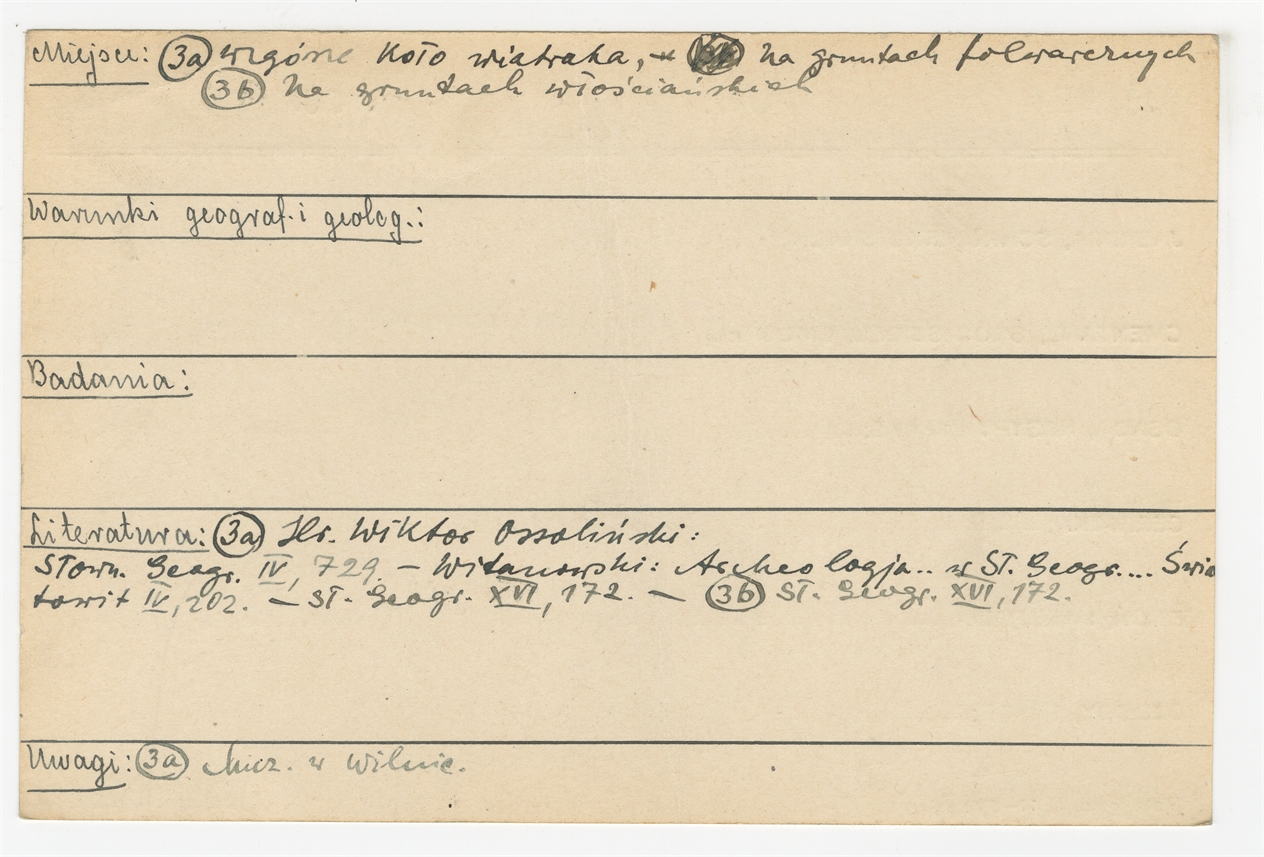 Miejsce: 3a wzgórze koło wiatraka, – na gruntach folwarcznych
3b Na gruntach włościańskich
Warunki geograf. i geolog.:
Badania:
Literatura: 3a Hr. Wiktor Ossoliński:
Słown. Geogr. IV, 729. – Witanowski: Archeologja.. w Sł. Geogr.... Świa
towit IV, 202. – Sł. Geogr. XVI, 172. – 3b Sł. Geogr. XVI, 172.
Uwagi: 3a Muz. w Wilnie.